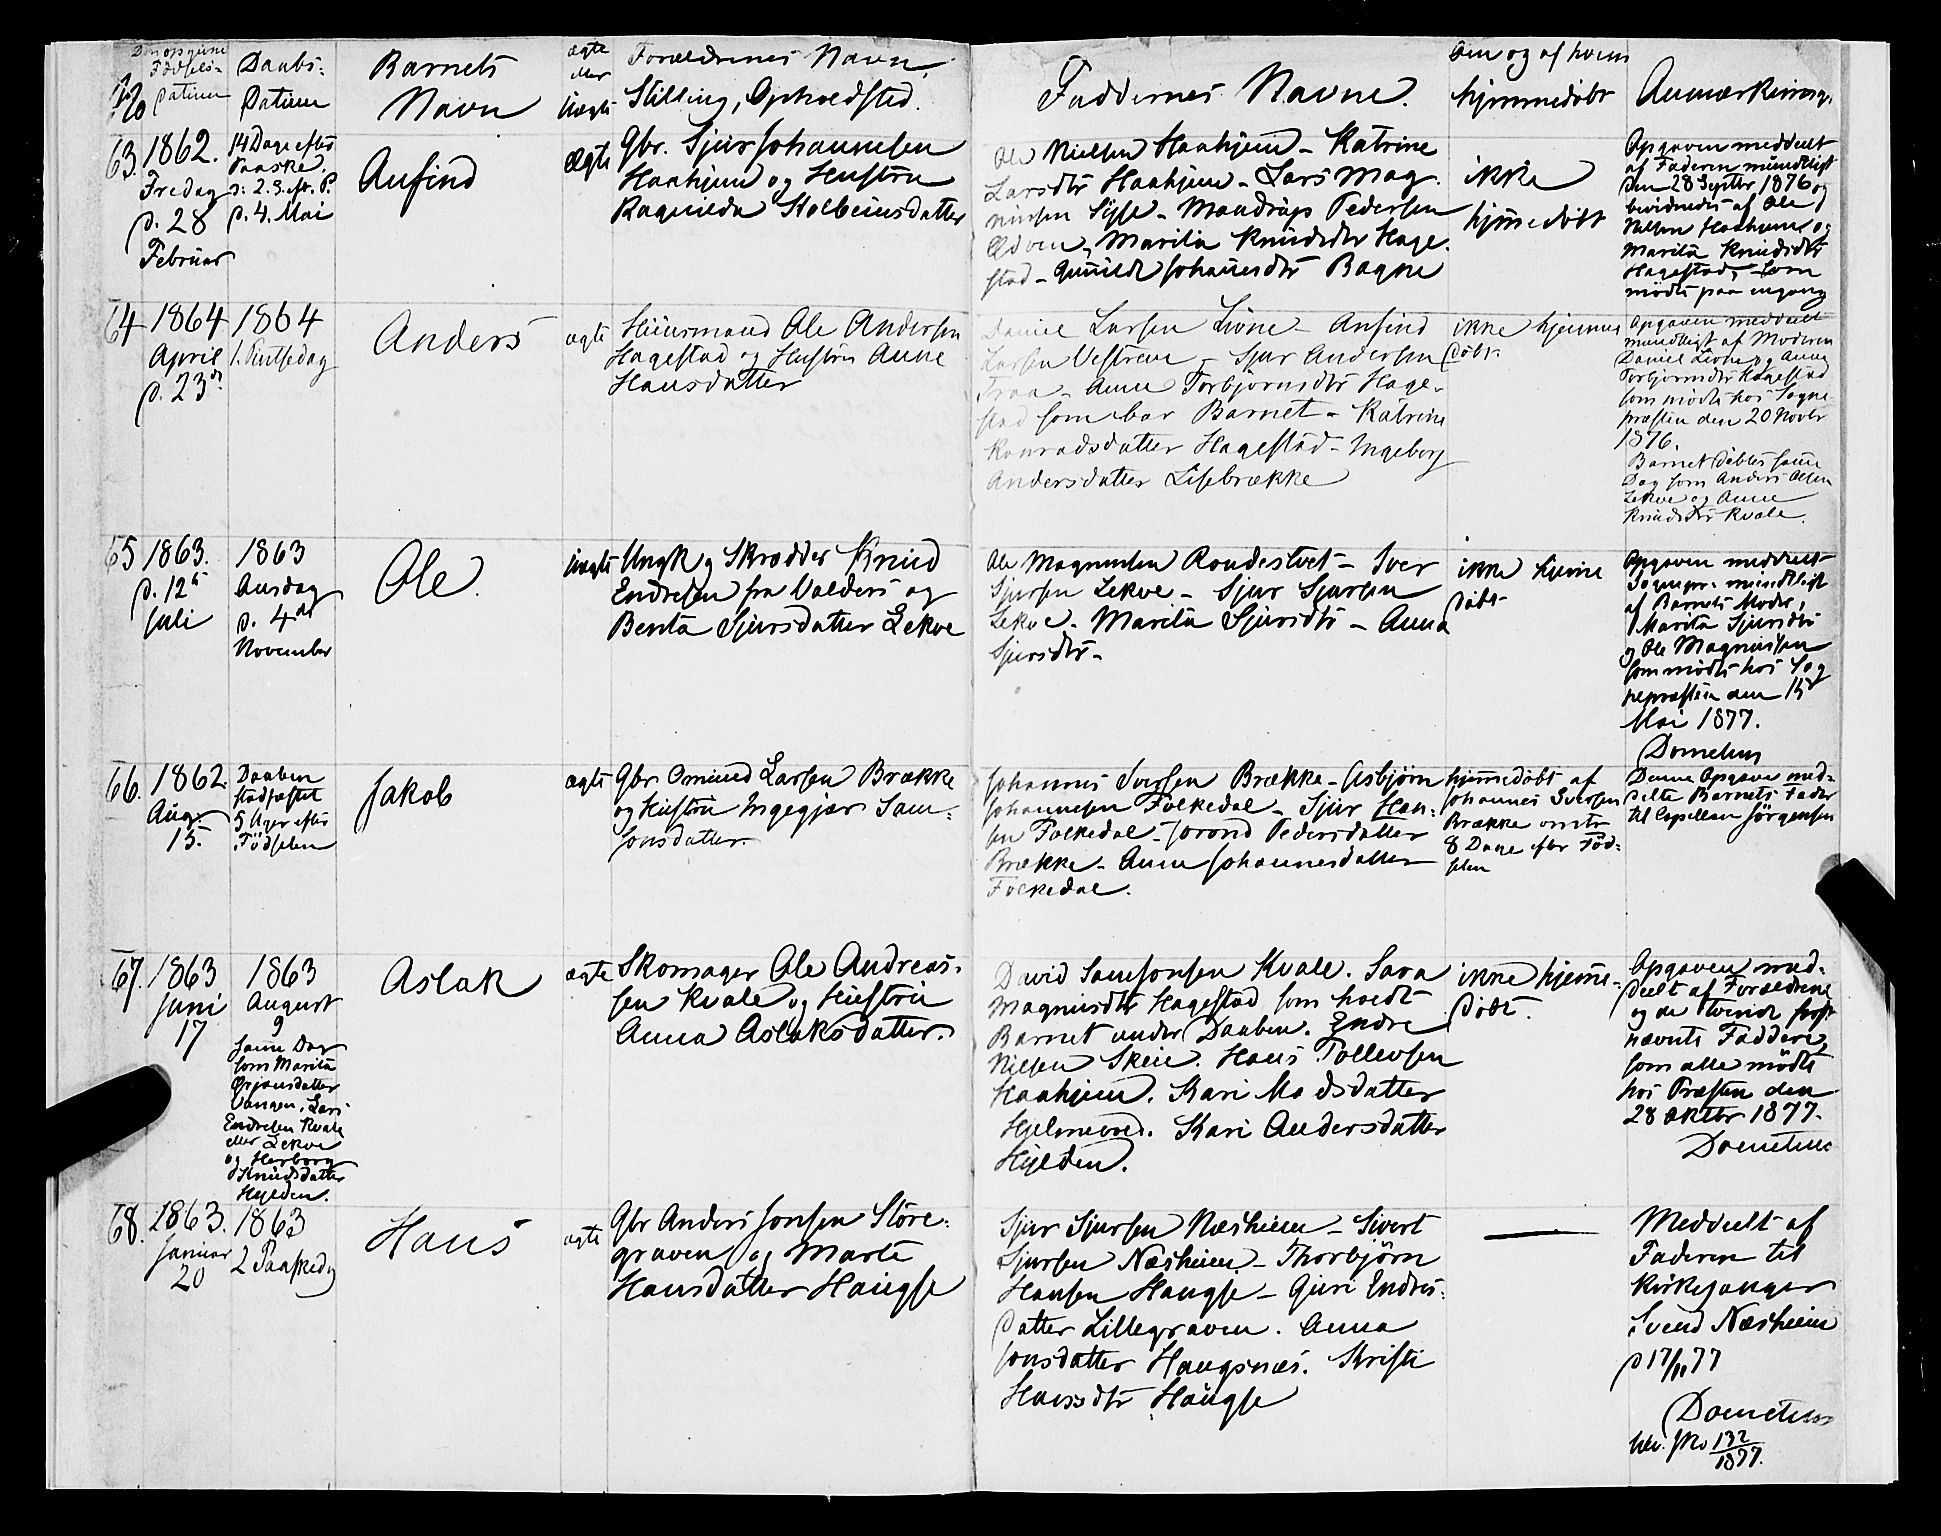 No
Den opgivne
Fødsels-
Datum
Daabs-
Datum
Barnets
Navn
ægte
eller
uægte
Forældrenes Navn,
Stilling, Opholdsted.
Faddernes Navne.
Om og af hvem
hjemmedøbt
Anmærkninger
63.
1862.
Fredag
d. 28
Februar
14 Dage efter
Paaske
ɔ: 2. S. eft. P.
d. 4. Mai
Anfind
Ægte
Gbr. Sjur Johannesen
Haahjem og Hustru
Ragnilda Kolbeinsdatter
Ole Nielsen Haahjem - Katrine
Larsdtr Haahjem - Lars Mag-
nussen Sysse - Mandrup Pedersen
Ødven, Marita Knudsdtr Hage-
stad - Gunilde Johannesdtr Bagne
ikke
hjemedöbt
Opgaven meddeelt
af Faderen mundtligt
den 28 Septbr 1876 og
bevidnedes af Ole
Nielsen Haahjem og
Marita Knudsdtr
Hagestad, som
mødte paa engang
64
1864
April
d. 23de
1864
1. Pintsedag
Anders
ægte
Huusmand Ole Andersen
Hagestad og Hustru Anne
Hansdatter
Daniel Larsen Lione - Anfind
Larsen Vestrem - Sjur Andersen
Traa - Anne Torbjørnsdtr Hage-
stad som bar Barnet - Katrine
Konradsdatter Hagestad - Ingeborg
Andersdatter Lisebrække
ikke hjemme
döbt
Opgaven meddeelt
mundtligt af Moderen
Daniel Lione og Anne
Torbjørnsdtr Hagestad
som mødte hos Sogne-
præsten den 20 Novbr
1876.
Barnet døbtes samme
Dag som Anders Olsen
Lekve og Anne
Knudsdtr Kvale.
65
1863.
d. 12te
Juli
1863
Onsdag
d. 4de
November
Ole.
uægte
Ungk. og Skrædder Knud
Endresen fra Valders og
Benta Sjursdatter Lekve
Ole Magnussen Rondestvet - Iver
Sjursen Lekve - Sjur Sjursen
Lekve. Marita Sjursdtr - Anna
Sjursdtr -
ikke hjeme
döbt
Opgaven meddeelt
Sognepr. mundtligt
af Barnets Moder,
Marita Sjursdtr
og Ole Magnussen
som mødte hos Sog
nepræsten den 15
Mai 1877.
Dometius
66.
1862.
Aug.
15.
Daaben
stadfæstet
5 Uger efter
Födselen
Jakob
ægte
Gbr. Omund Larsen Brække
og Hustru Ingegjær Sam-
sonsdatter.
Johannes Iversen Brække - Asbjørn
Johannesen Folkedal - Sjur Han-
sen Folkedal - Jorond Pedersdatter
Brække - Anne Johannesdatter
Folkedal.
hjemmedøbt af
Johannes Iversen
Brække omtr
8 Dage efter Föd-
selen
Denne Opgave med-
delte Barnets Fader
til Capellan Jørgensen
67.
1863
Juni
17
1863
August
9
samme Dag
som Marita
Ørjansdatter
Vangen, Lars
Endresen Kvale
eller Lekve
og Herborg
Knudsdatter
Hylden.
Aslak
ægte
Skomager Ole Andreas-
sen Kvale og Hustru
Anna Aslaksdatter.
David Samsonsen Kvale. Sara
Magnusdtr Hagestad som holdt
Barnet under Daaben. Endre
Nilsen Skeie. Hans Tollevsen
Haahjem. Kari Madsdatter
Hjelmevold. Kari Andersdatter
Hylden.
ikke hjeme-
döbt.
Opgaven med-
deelt af Forældrene
og de tvende först
nævnte Faddere,
som alle mødte
hos Præsten den
28 Oktbr 1877.
Dometius
68.
1863.
Januar
20
1863
2 Paaskedag
Hans
ægte
Gbr Anders Jonsen Store-
graven og Marta
Hansdatter Haugse
Sjur Sjursen Næsheim - Sivert
Sjursen Næsheim - Thorbjörn
Hansen Haugse - Guri Endres-
datter Lillegraven. Anna
Jonsdatter Haugsnæs. Kristi
Hansdtr Haugse
Meddeelt af
Faderen til
Kirkesanger
Svend Næsheim
d 17/11 77
Dometius
JNo 132/1877.